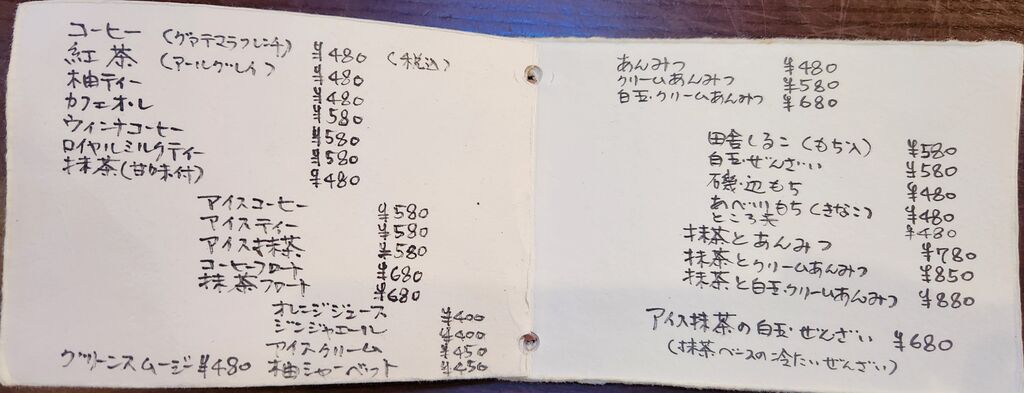 コーヒー (グァテマラフレンチ) ¥480 (税込)
紅茶 (アールグレイ) ¥480
柚ティー ¥480
カフェオ・レ ¥580
ウィンナコーヒー ¥580
ロイヤルミルクティー ¥580
抹茶(甘味付) ¥480
アイスコーヒー ¥580
アイスティー ¥580
アイス抹茶 ¥580
コーヒーフロート ¥680
抹茶フロート ¥680
オレンジジュース ¥400
ジンジャエール ¥400
アイスクリーム ¥450
グリーンスムージー ¥480 柚シャーベット ¥450
あんみつ ¥480
クリームあんみつ ¥580
白玉・クリームあんみつ ¥680
田舎しるこ (もち入) ¥580
白玉・ぜんざい ¥580
磯・辺もち ¥480
あべ川もち (きなこ) ¥480
ところ天 ¥480
抹茶とあんみつ ¥780
抹茶とクリームあんみつ ¥850
抹茶と白玉・クリームあんみつ ¥880
アイス抹茶の白玉・ぜんざい ¥680
(抹茶ベースの冷たいぜんざい)